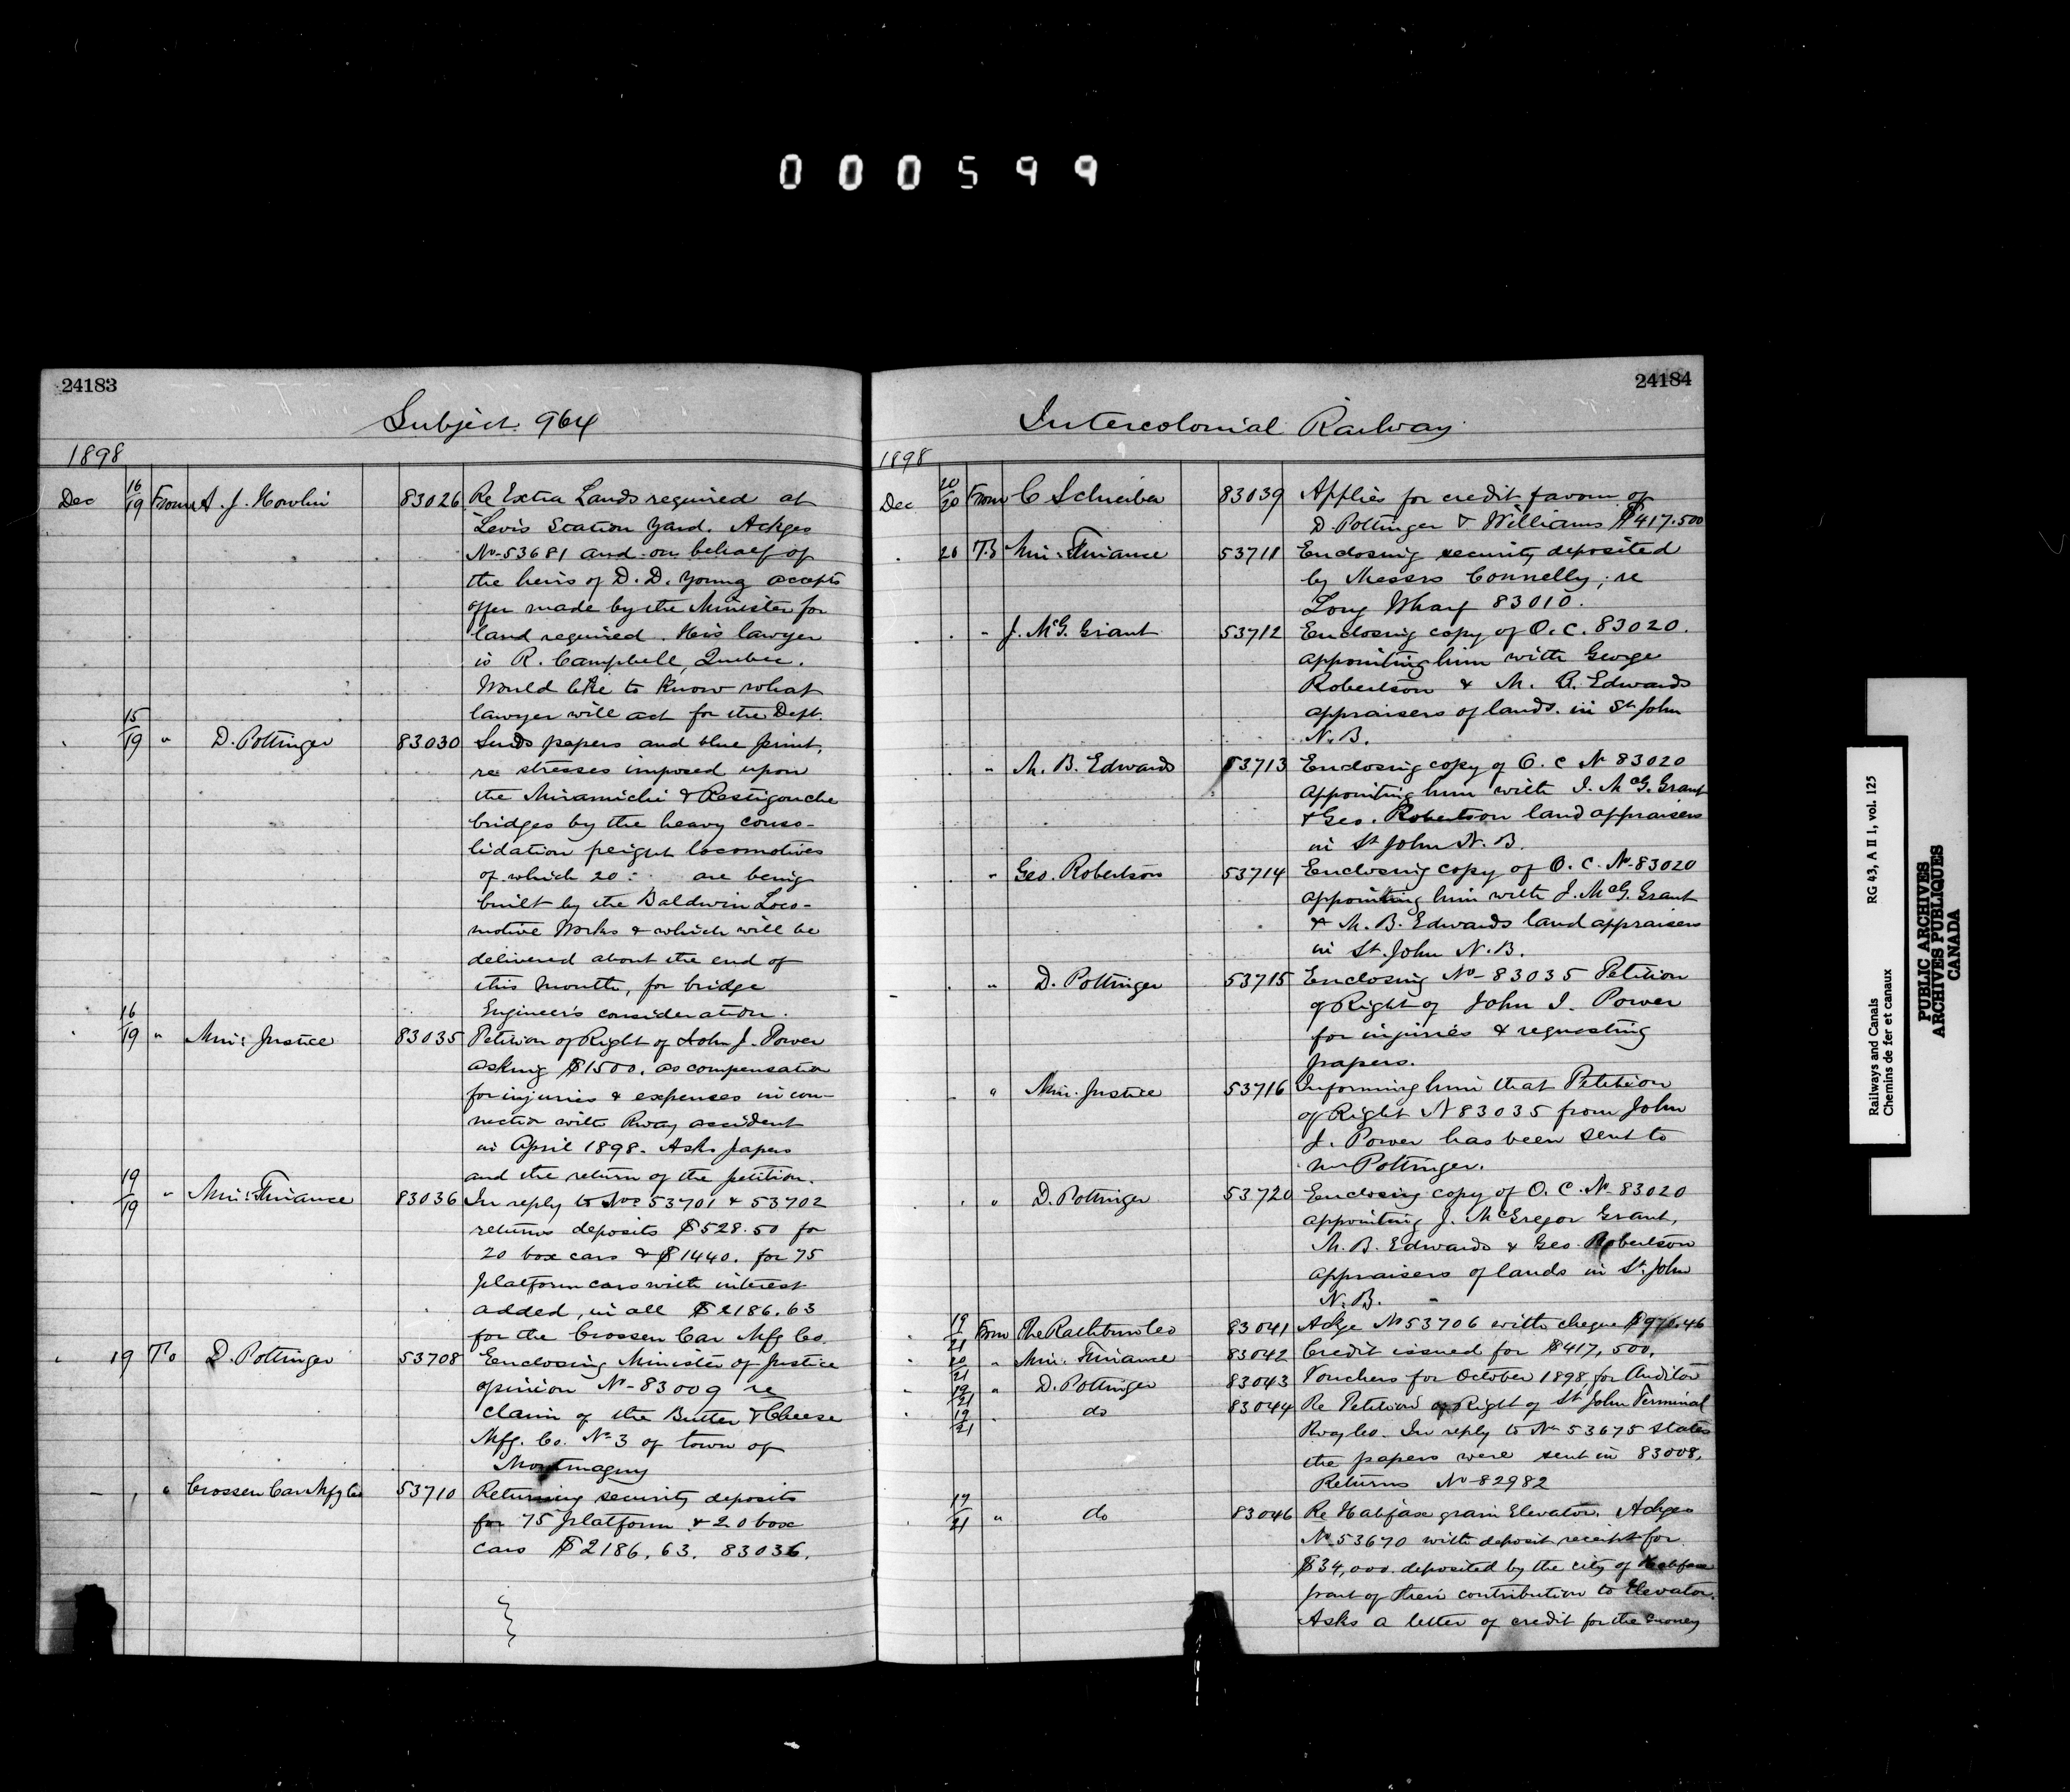 000599
24183
Subject 964
1898
Dec 16/19 From A. J. Howlin 83026 Re Extra Lands required at
Levis Station Yard. Ackges
No 53681 and on behalf of
the heirs of D. D. Young accepts
offer made by the Minister for
land required. His lawyer
is R. Campbell, Quebec.
Would like to know what
lawyer will act for the Dept.
15/19 " D. Pottinger 83030 Sends papers and blue print,
re stresses imposed upon
the Miramichi & Restigouche
bridges by the heavy conso-
lidation freight locomotives
of which 20 are being
built by the Baldwin Loco-
motive Works & which will be
delivered about the end of
this month, for bridge
Engineer's consideration.
16/19 " Min: Justice 83035 Petition of Right of John J. Power
asking $1500. as compensation
for injuries & expenses in con-
nection with Rway accident
in April 1898. Asks papers
and the return of the petition.
19/19 " Min: Finance 83036 In reply to Nos 53701 & 53702
returns deposits $528.50 for
20 box cars & $1440. for 75
platform cars with interest
added, in all $2186.63
for the Crossen Car Mfg Co.
" 19 To D. Pottinger 53708 Enclosing Minister of Justice
opinion No 83009 re
claim of the Butter & Cheese
Mfg. Co. No 3 of town of
Montmagny
" Crossen Car Mfg Co 53710 Returning security deposits
for 75 platform & 20 box
cars $2186.63. 83036.
24184
Intercolonial Railway
1898
Dec 20/20 From C Schreiber 83039 Applies for credit favour of
D. Pottinger & Williams $417.500
20 To Min: Finance 53711 Enclosing security deposited
by Messrs Connelly, re
Long Wharf 83010.
" J. McG. Grant 53712 Enclosing copy of O.C. 83020.
appointing him with George
Robertson & M. B. Edwards
appraisers of lands in St John
N.B.
" M. B. Edwards 53713 Enclosing copy of O.C No 83020
appointing him with J. McG. Grant
& Geo. Robertson land appraisers
in St John N.B.
" Geo. Robertson 53714 Enclosing copy of O.C. No 83020
appointing him with J. McG. Grant
& M. B. Edwards land appraisers
in St. John N.B.
" D. Pottinger 53715 Enclosing No 83035 Petition
of Right of John J. Power
for injuries & requesting
papers.
" Min. Justice 53716 Informing him that Petition
of Right No 83035 from John
J. Power has been sent to
Mr Pottinger.
" D. Pottinger 53720 Enclosing copy of O.C. No 83020
appointing J. McGregor Grant,
M. B. Edwards & Geo. Robertson
appraisers of lands in St. John
N.B.
19/21 From The Rathbun Co 83041 Ackge No 53706 with cheque
20/21 " Min. Finance 83042 Credit issued for $417,500.
19/21 " D. Pottinger 83043 Vouchers for October 1898, for Auditor
19/21 do 83044 Re Petition of Right of St John Terminal
Rway Co. In reply to No 53675 states
the papers were sent in 83008.
Returns No 82982
19/21 " do 83046 Re Halifax grain Elevator. Ackges
No 53670 with deposit receipt for
$34,000 deposited by the city of Halifax
part of their contribution to Elevator.
Asks a letter of credit for the money
Railways and Canals RG 43, A II 1, vol. 125
Chemins de fer et canaux
PUBLIC ARCHIVES
ARCHIVES PUBLIQUES
CANADA